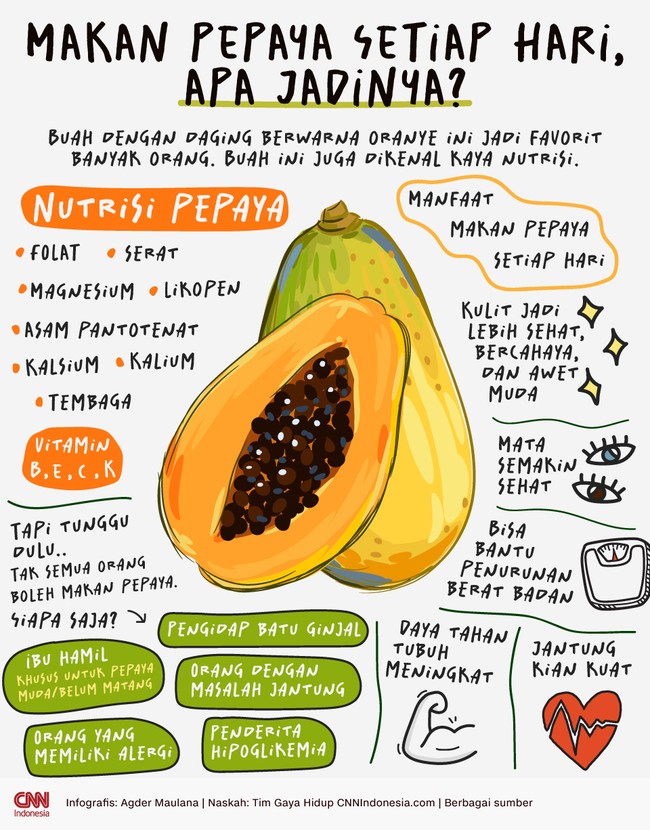 MAKAN PEPAYA SETIAP HARI,
APA JADINYA?
BUAH DENGAN DAGING BERWARNA ORANYE INI JADI FAVORIT
BANYAK ORANG. BUAH INI JUGA DIKENAL KAYA NUTRISI.
NUTRISI PEPAYA
• FOLAT • SERAT
• MAGNESIUM • LIKOPEN
• ASAM PANTOTENAT
• KALSIUM • KALIUM
• TEMBAGA
VITAMIN
B, E, C, K
MANFAAT
MAKAN PEPAYA
SETIAP HARI
KULIT JADI
LEBIH SEHAT,
BERCAHAYA,
DAN AWET
MUDA
MATA
SEMAKIN
SEHAT
BISA
BANTU
PENURUNAN
BERAT BADAN
DAYA TAHAN
TUBUH
MENINGKAT
JANTUNG
KIAN KUAT
TAPI TUNGGU
DULU..
TAK SEMUA ORANG
BOLEH MAKAN PEPAYA.
SIAPA SAJA?
PENGIDAP BATU GINJAL
IBU HAMIL
KHUSUS UNTUK PEPAYA
MUDA/BELUM MATANG
ORANG DENGAN
MASALAH JANTUNG
ORANG YANG
MEMILIKI ALERGI
PENDERITA
HIPOGLIKEMIA
CNN
Indonesia
Infografis: Agder Maulana | Naskah: Tim Gaya Hidup CNNIndonesia.com | Berbagai sumber